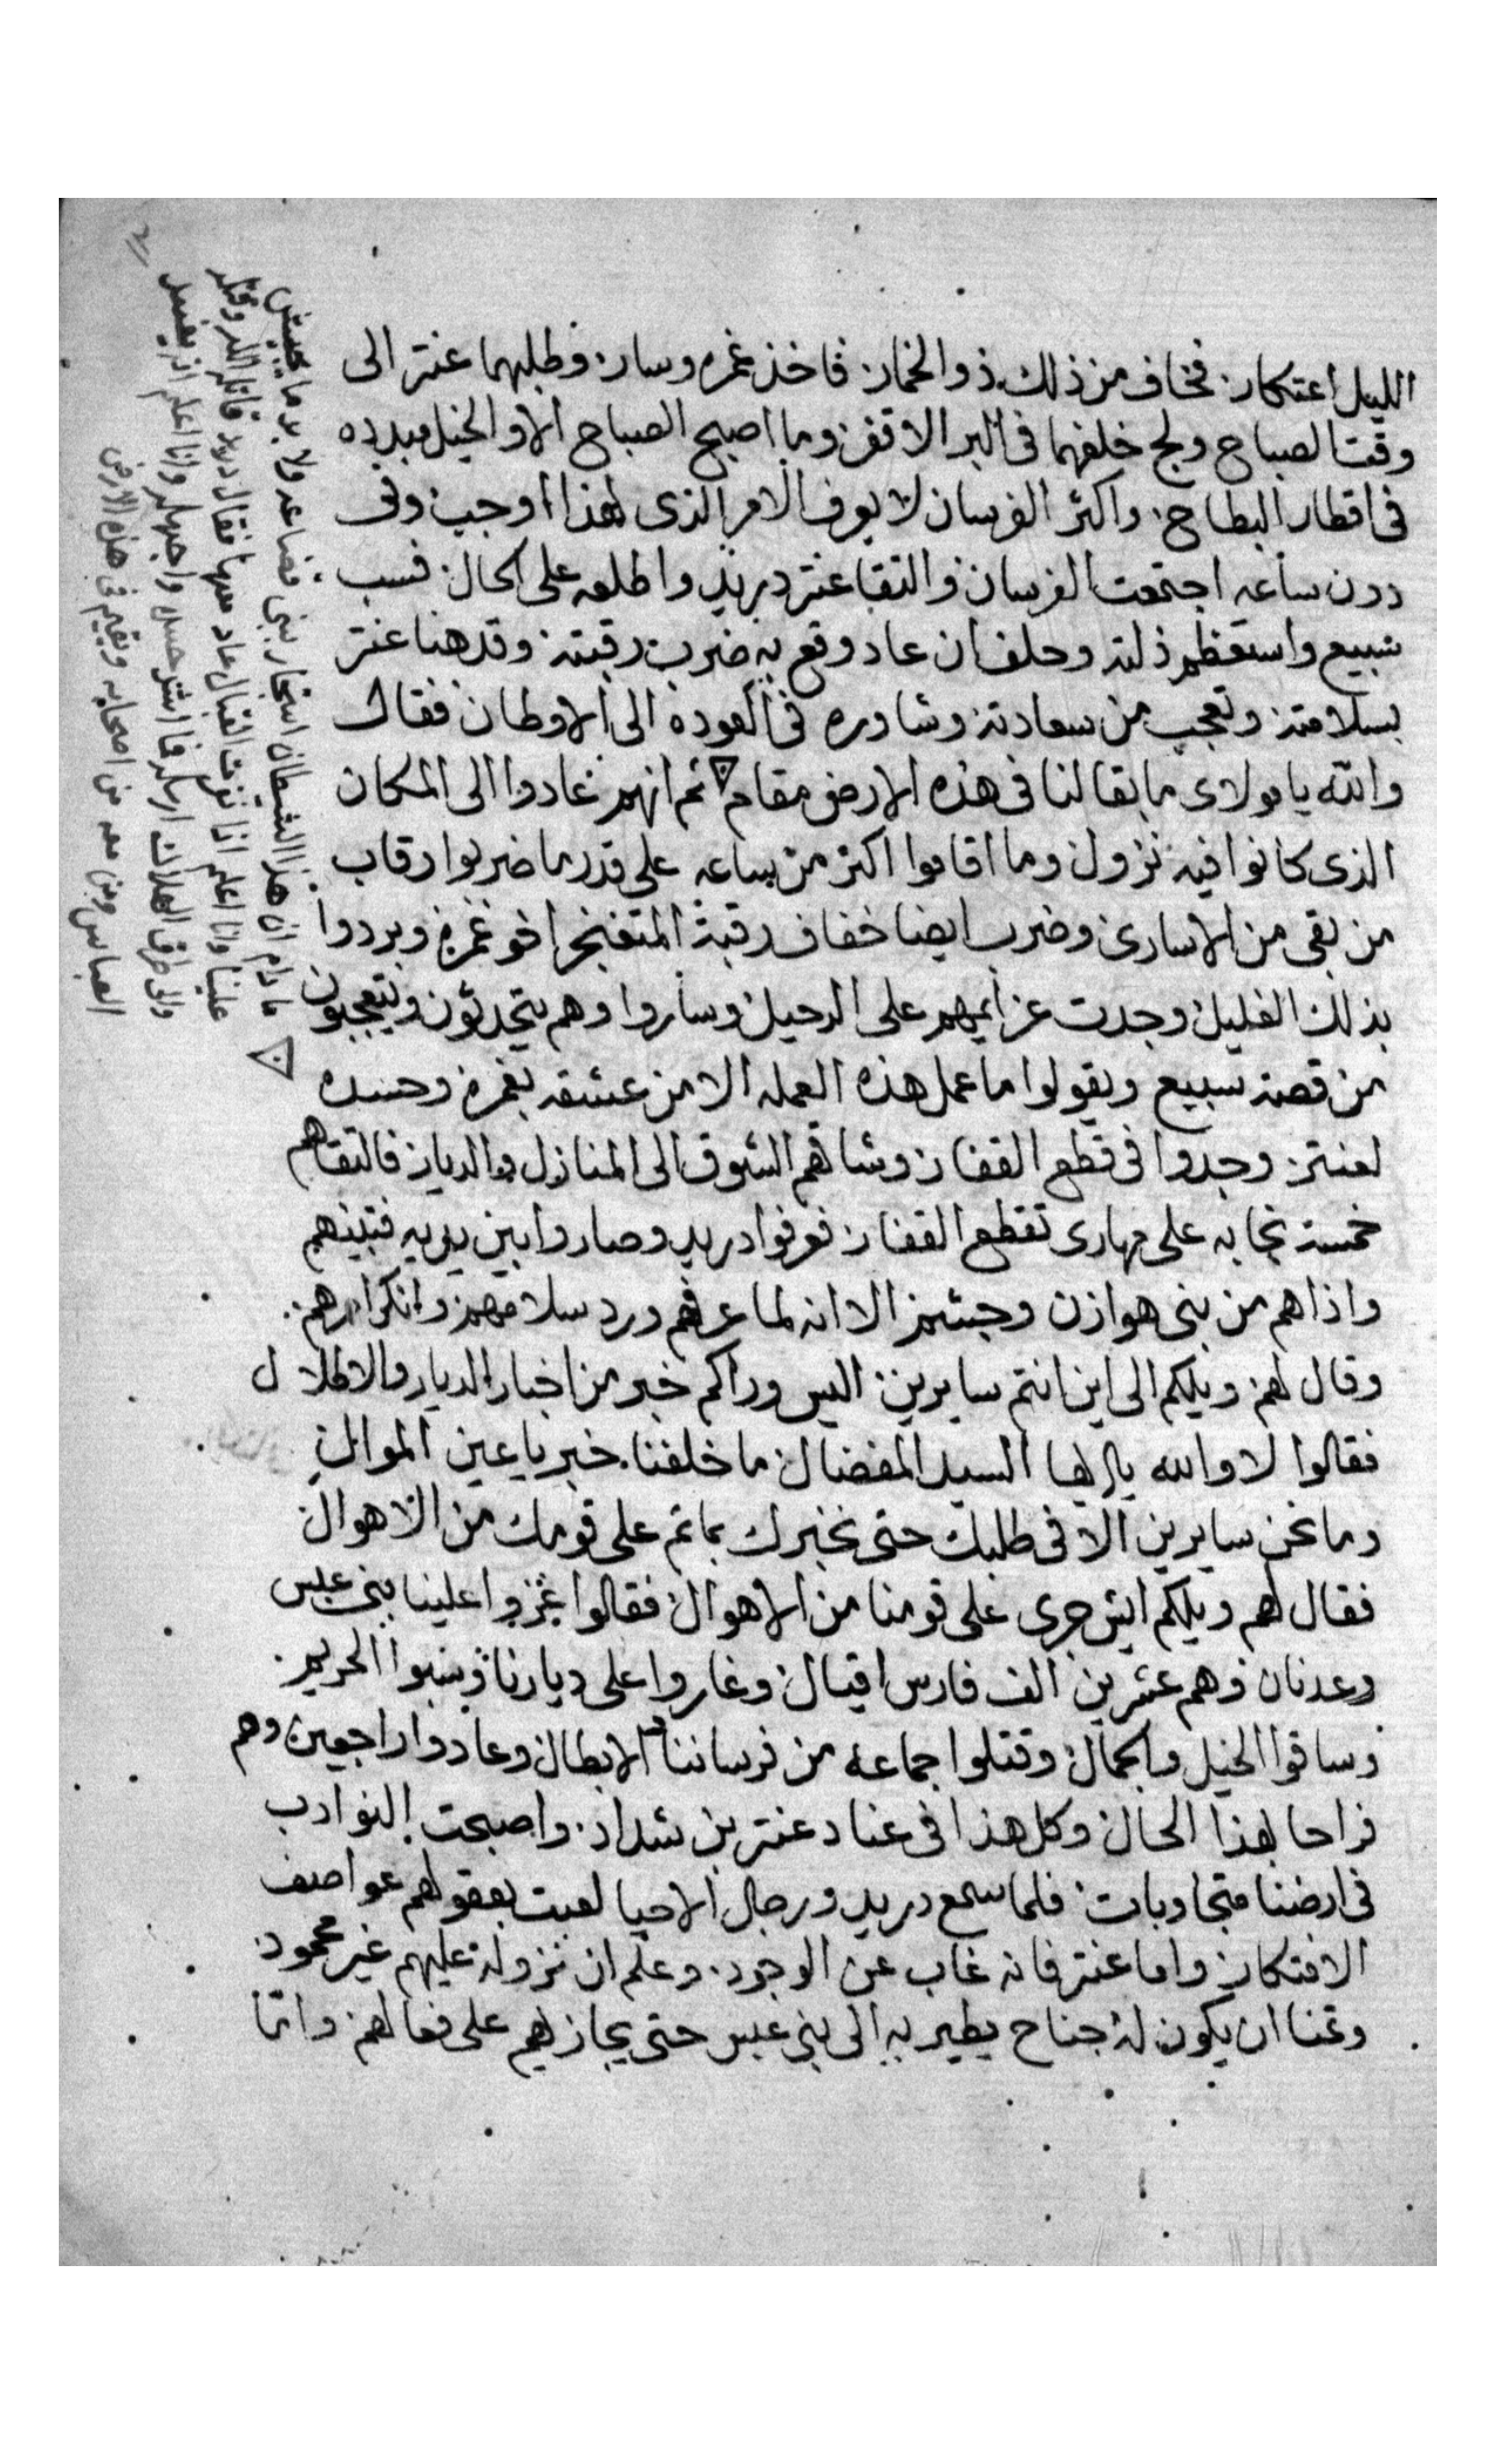 الليل اعتكار. فخاف من ذلك ذو الخمار. فاخذ غمره وسار. وطلبهما عنتر الى
وقت الصباح ولج خلفهما فى البر الاقفر. وما اصبح الصباح الا والخيل مبدده
فى اقطار البطاح. واكثر الفرسان لا يعرف الامر الذى لهذا اوجب وفى
دون ساعه اجتمعت الفرسان والتقا عنتر دريد واطلعه على الحال فسب
سبيع واستعظم ذلته وحلف ان عاد وقع به ضرب رقبته وقد هنا عنتر
بسلامته وتعجب من سعادته وشاوره فى العوده الى الاوطان فقال
والله يا مولاى ما بقا لنا فى هذه الارض مقام ثم انهم عادوا الى المكان
الذى كانوا فيه نزول وما اقاموا اكثر من ساعه على قدر ما ضربوا رقاب
من بقى من الاسارى وضرب ايضا خفاف رقبة المتغنجر اخو غمره وبردوا
بذلك الغليل وجدت عزايمهم على الرحيل وساروا وهم يتحدثون ويتعجبون
من قصة سبيع ويقولوا ما عمل هذه العمله الا من عشقه بغمره وحسده
لعنتر. وجدوا فى قطع القفار وشاقهم الشوق الى المنازل والديار فالتقاهم
خمسة نجابه على مهارى تقطع القفار فعرفوا دريد وصاروا بين يديه فتبينهم
واذا هم من بنى هوازن وجشم الا انه لما عرفهم ورد سلامهم وانكر امرهم.
وقال لهم ويلكم الى اين انتم سايرين اليس وراكم خبر من اخبار الديار والاطلال
فقالوا لا والله يا ايها السيد المفضال ما خلفنا خبر يا عين الموالى
وما نحن سايرين الا فى طلبك حتى نخبرك بما تم على قومك من الاهوال
فقال لهم ويلكم ايش جرى على قومنا من الاهوال فقالوا غزوا علينا بنى عبس
وعدنان وهم عشرين الف فارس اقيال وغاروا على ديارنا وسبوا الحريم.
وساقوا الخيل والجمال وقتلوا جماعه من فرساننا الابطال وعادوا راجعين وهم
فراحا بهذا الحال وكل هذا فى عناد عنتر بن شداد. واصبحت النوادب
فى ارضنا متجاوبات. فلما سمع دريد ورجال الاحيا لعبت بعقولهم عواصف
الافتكار واما عنتر فانه غاب عن الوجود. وعلم ان نزوله عليهم غير محمود.
وتمنا ان يكون له جناح يطير به الى بنى عبس حتى يجازيهم على فعالهم. وانما
ما دام ان هذا الشيطان استجار ببنى قضاعه ولا بد ما يجيش
علينا وانا اعلم اذا تفرقت القبايل عاد منها فقال دريد
وانا اعلم ان يفيد
العباس ومن معه من اصحابه ويقيم فى هذه الارض